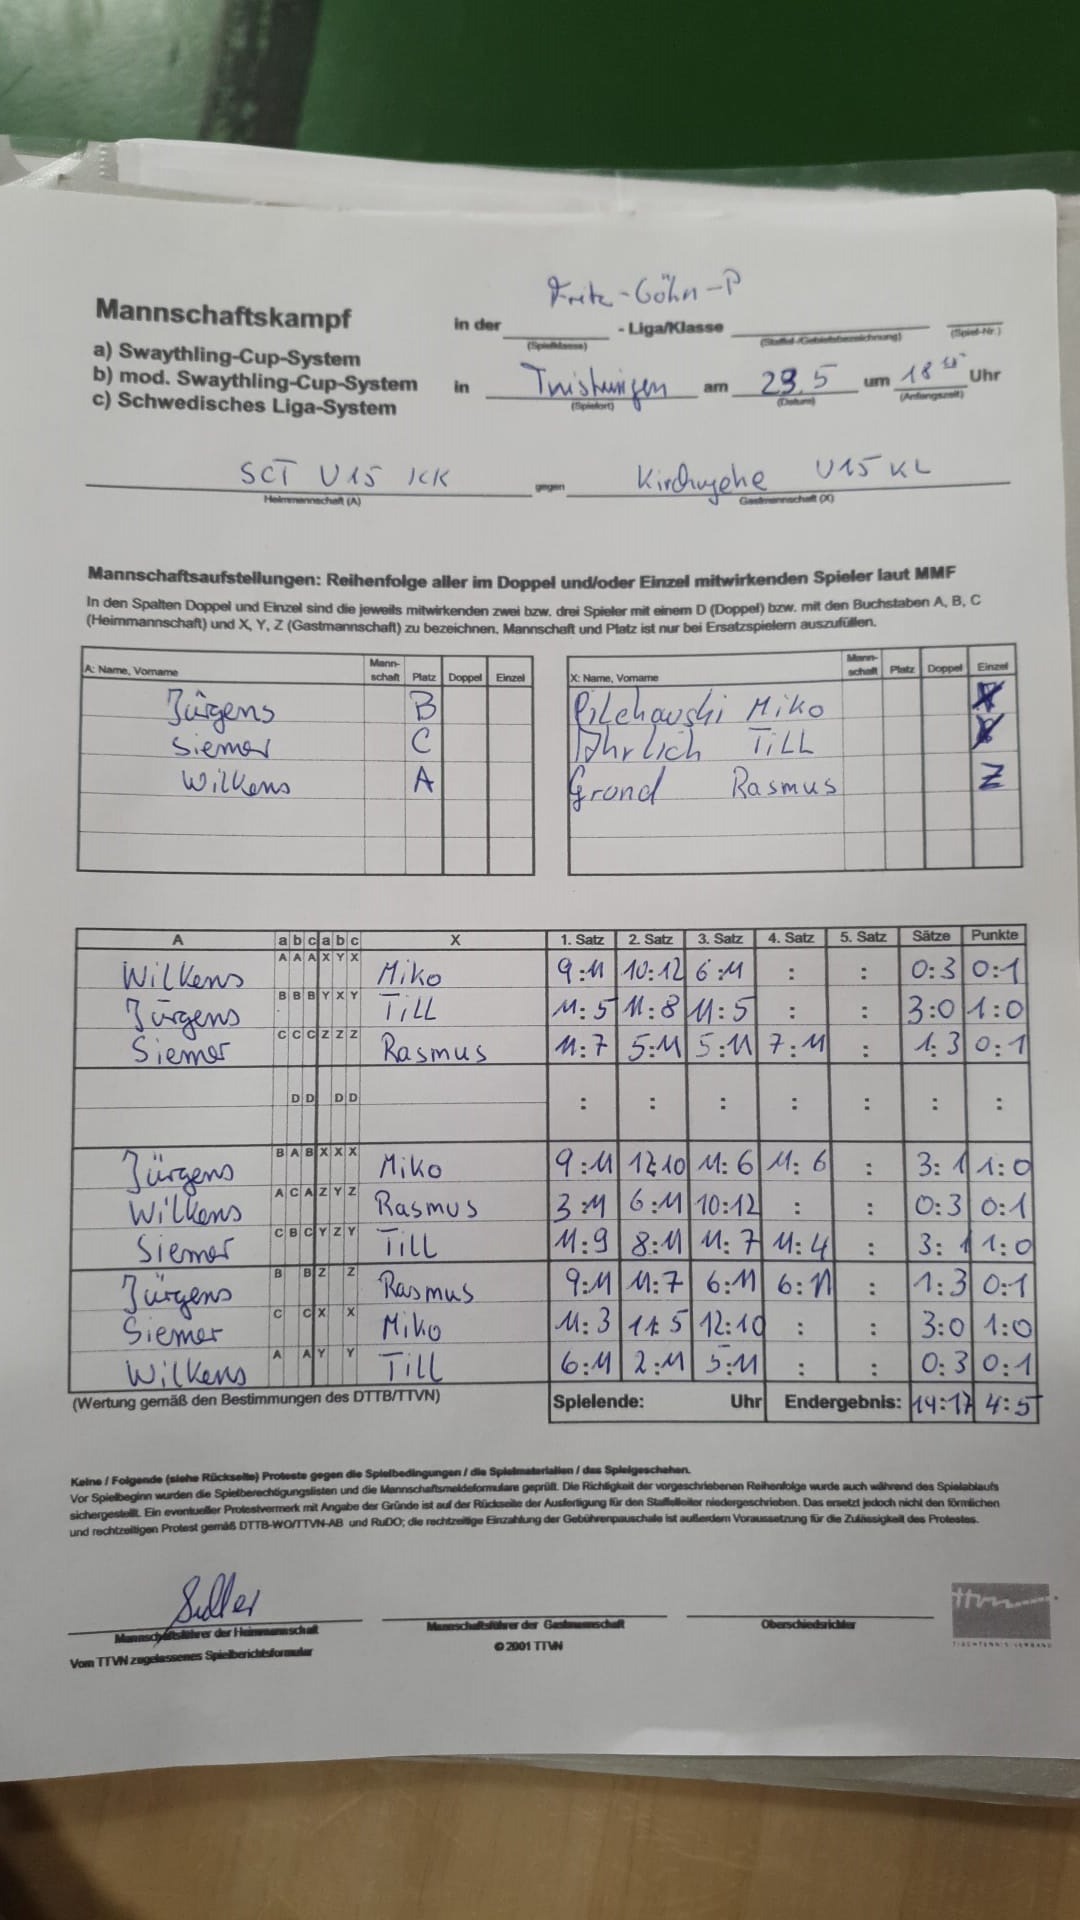 Fritz-Göhn-P
Mannschaftskampf in der - Liga/Klasse
(Spielklasse) (Staffel-/Gebietsbezeichnung) (Spiel-Nr.)
a) Swaythling-Cup-System
b) mod. Swaythling-Cup-System in Twistringen am 29.5 um 18 Uhr
c) Schwedisches Liga-System (Spielort) (Datum) (Anfangszeit)
SCT U15 KK gegen Kirchweyhe U15 KL
Heimmannschaft (A) Gastmannschaft (X)
Mannschaftsaufstellungen: Reihenfolge aller im Doppel und/oder Einzel mitwirkenden Spieler laut MMF
In den Spalten Doppel und Einzel sind die jeweils mitwirkenden zwei bzw. drei Spieler mit einem D (Doppel) bzw. mit den Buchstaben A, B, C
(Heimmannschaft) und X, Y, Z (Gastmannschaft) zu bezeichnen. Mannschaft und Platz ist nur bei Ersatzspielern auszufüllen.
A: Name, Vorname Mann-schaft Platz Doppel Einzel X: Name, Vorname Mann-schaft Platz Doppel Einzel
Jürgens B Pilchowski Miko X
Siemer C TILL
Wilkens A Grond Rasmus Z
A a b c a b c X 1. Satz 2. Satz 3. Satz 4. Satz 5. Satz Sätze Punkte
Wilkens A A A X Y X Miko 9:11 10:12 6:11 : : 0:3 0:1
Jürgens B B B Y X Y TILL 11:5 11:8 11:5 : : 3:0 1:0
Siemer C C C Z Z Z Rasmus 11:7 5:11 5:11 7:11 : 1:3 0:1
D D D D : : : : : : :
Jürgens B A B X X X Miko 9:11 12:10 11:6 11:6 : 3:1 1:0
Wilkens A C A Z Y Z Rasmus 3:11 6:11 10:12 : : 0:3 0:1
Siemer C B C Y Z Y TILL 11:9 8:11 11:7 11:4 : 3:1 1:0
Jürgens B B Z Z Rasmus 9:11 11:7 6:11 6:11 : 1:3 0:1
Siemer C C X X Miko 11:3 11:5 12:10 : : 3:0 1:0
Wilkens A A Y Y TILL 6:11 2:11 5:11 : : 0:3 0:1
(Wertung gemäß den Bestimmungen des DTTB/TTVN) Spielende: Uhr Endergebnis: 14:17 4:5
Keine / Folgende (siehe Rückseite) Proteste gegen die Spielbedingungen / die Spielmaterialien / das Spielgeschehen.
Vor Spielbeginn wurden die Spielberechtigungslisten und die Mannschaftsmeldeformulare geprüft. Die Richtigkeit der vorgeschriebenen Reihenfolge wurde auch während des Spielablaufs
sichergestellt. Ein eventueller Protestvermerk mit Angabe der Gründe ist auf der Rückseite der Ausfertigung für den Staffelleiter niedergeschrieben. Das ersetzt jedoch nicht den förmlichen
und rechtzeitigen Protest gemäß DTTB-WO/TTVN-AB und RuDO; die rechtzeitige Einzahlung der Gebührenpauschale ist außerdem Voraussetzung für die Zulässigkeit des Protestes.
Mannschaftsführer der Heimmannschaft Mannschaftsführer der Gastmannschaft Oberschiedsrichter
Vom TTVN zugelassenes Spielberichtsformular © 2001 TTVN
ttvn
TISCHTENNIS-VERBAND